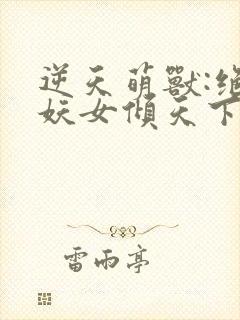 逆天萌獸:絕
妖女傾天下
雷雨亭